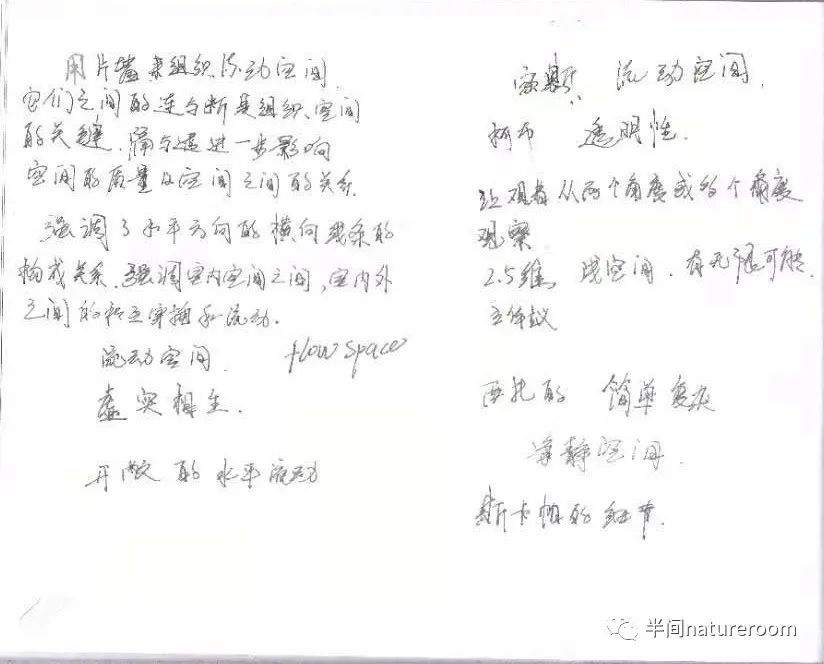 用片墙来组织流动空间
它们之间的连与断是组织空间
的关键.隔与透进一步影响
空间的质量及空间之间的关系
强调了水平方向的横向线条的
构成关系.强调室内空间之间,室内外
之间的相互穿插和流动.
流动空间 flow space
虚实相生.
开敞的水平流动
密斯 流动空间.
柯布 透明性.
让观者从两个角度或多个角度
观察
2.5维 浅空间.有无限可能
立体
西扎的 简单复杂
宁静空间.
斯卡帕的细节.
半间natureroom